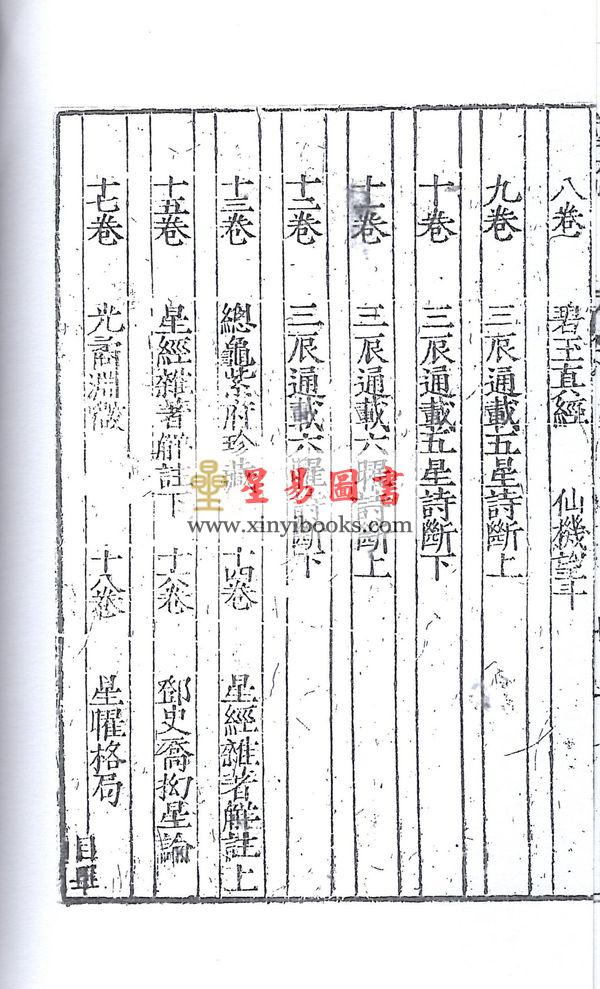 八卷 碧玉真經 仙機望斗
九卷 三辰通載五星詩斷上
十卷 三辰通載五星詩斷下
十一卷 三辰通載六曜詩斷上
十二卷 三辰通載六曜詩斷下
十三卷 總龜紫府珍藏 十四卷 星經雜著解註上
十五卷 星經雜著解註下 十六卷 鄧史喬拗星論
十七卷 光裔淵微 十八卷 星曜格局
目畢
星易圖書
www.xinyibooks.com